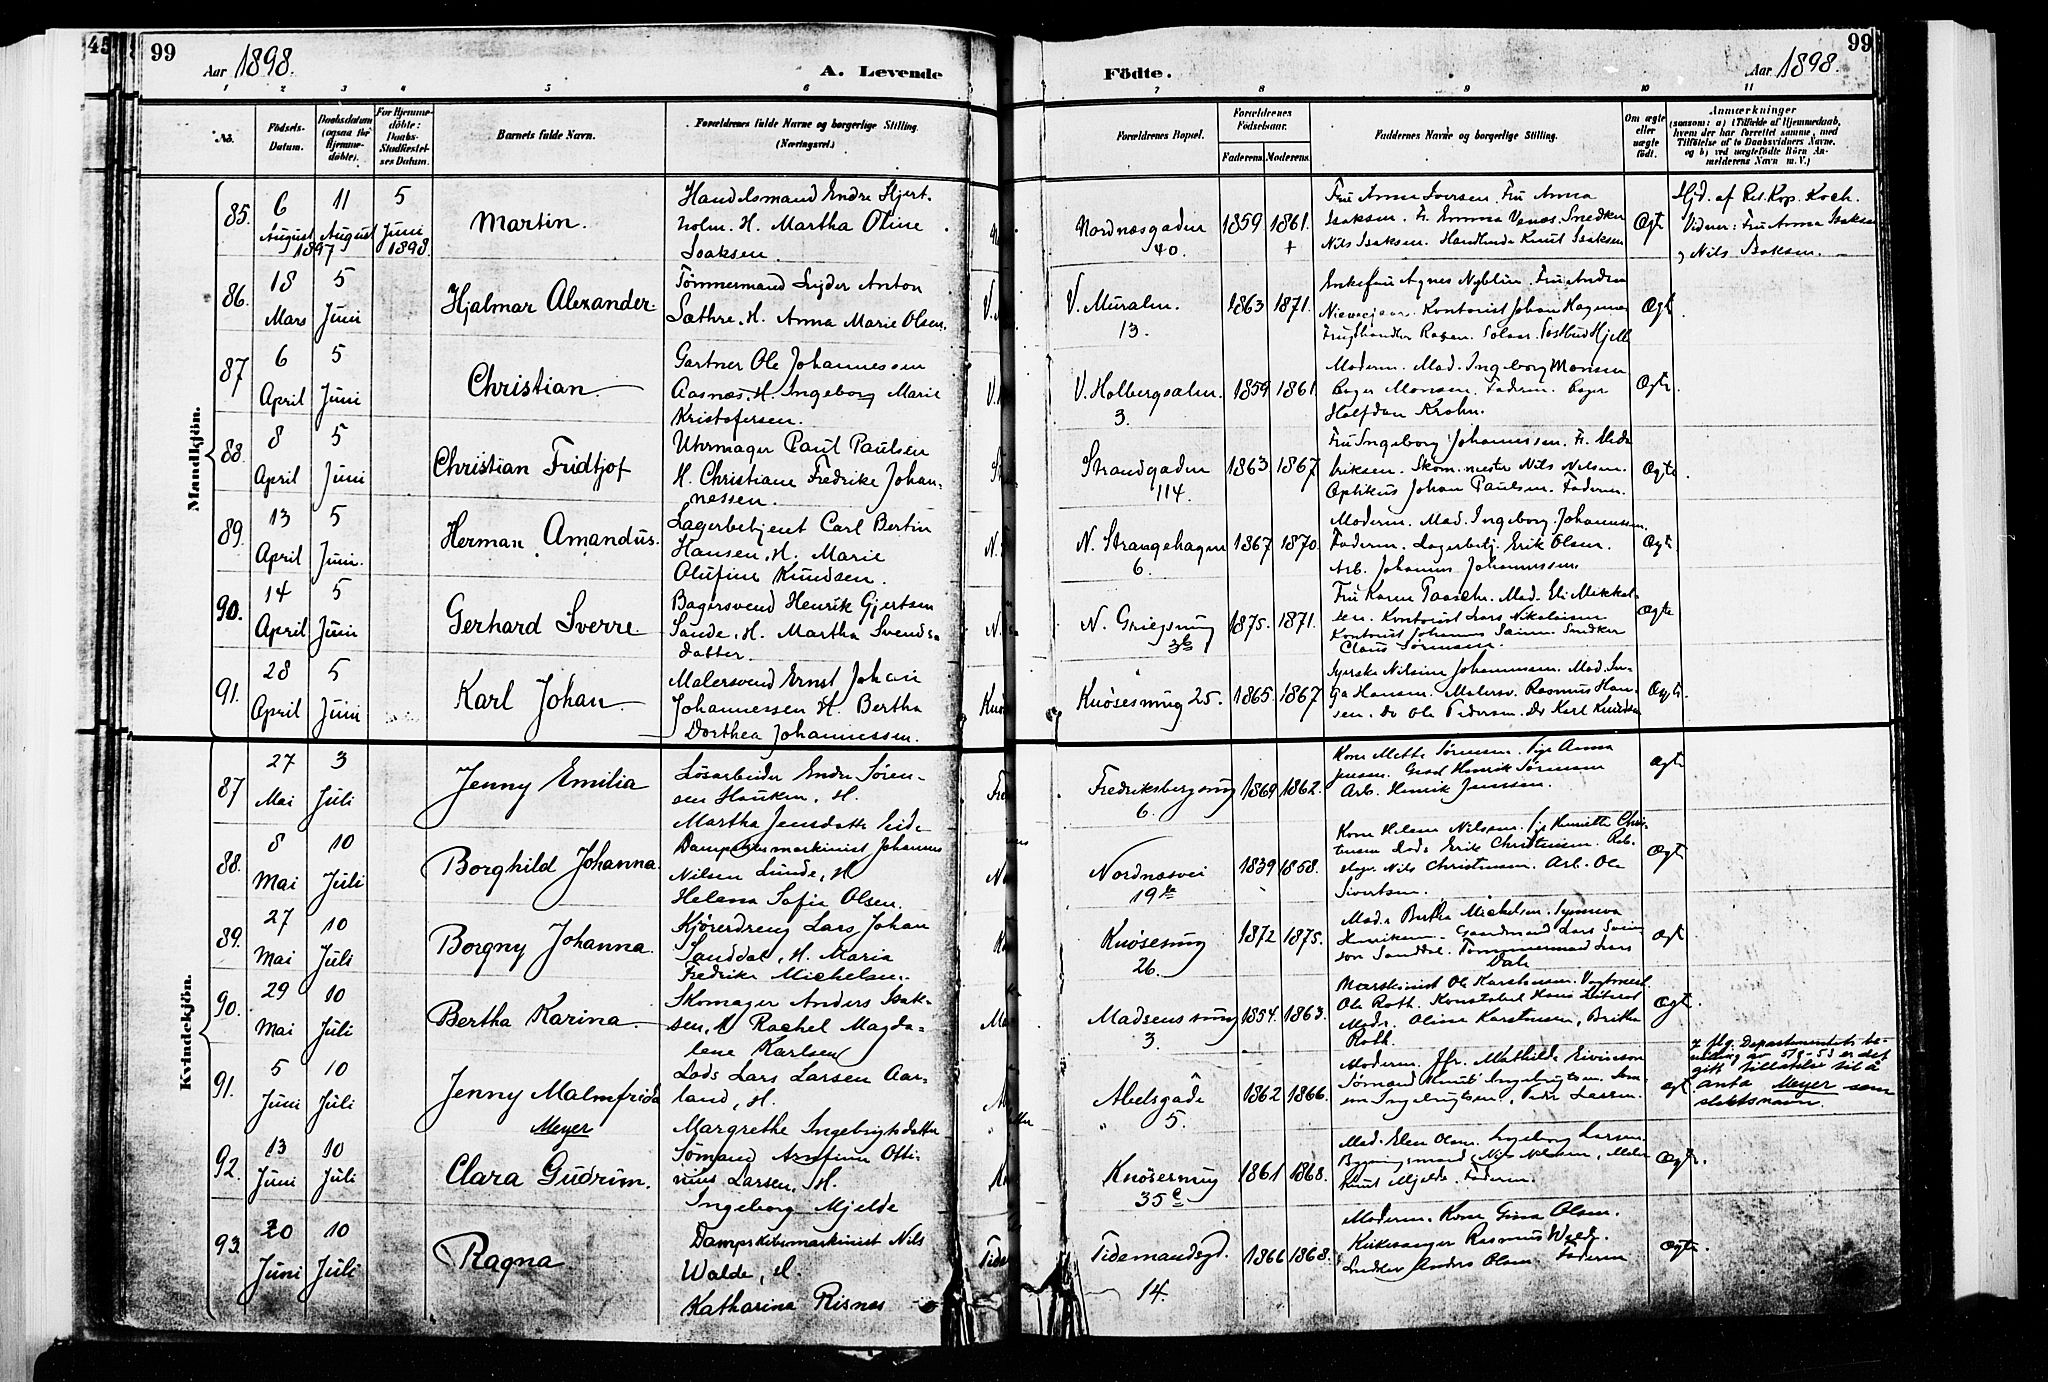 45
99
Aar 1898.
A. Levende
Födte.
Aar 1898.
99
1 2 3 4 5 6 7 8 9 10 11
No.
Födsels-Datum.
Daabsdatum (ogsaa for Hjemme-döbte).
For Hjemme-döbte:
Barnets fulde Navn.
Forældrenes fulde Navne og borgerlige Stilling.
(Næringsvei.)
Forældrenes Bopæl.
Forældrenes Födselsaar.
Faderens. Moderens.
Faddernes Navne og borgerlige Stilling.
Om ægte eller uægte födt.
Anmærkninger
(saasom: a) i Tilfælde af Hjemmedaab,
hvem der har forrettet samme, med
Tilföielse af to Daabsvidners Navne,
og b) ved uægtefödte Börn An-
melderens Navn m. V.)
Mandkjön.
85. 6 August 1897 11 August 5 Juni 1898
Martin.
Handelsmand Endre Hjert-
holm. H. Martha Oline
Isaksen.
Nordnæsgaden
40.
1859 1861. +
Fru Anna Iversen. Fru Anna
Isaksen. Fr. Emma Snedker
Nils Isaksen. Knut Isaksen
Ægte
Hjd. af Res. Kap. Koch.
Vidner: Fru Anna Isaksen
Nils Isaksen.
86. 18 Mars 5 Juni
Hjalmar Alexander.
Tømmermand Anton
Sæthre. H. Anna Marie Olsen.
V. Muralm.
13.
1863 1871.
Enkefru Agnes Fru Andrea
Kontorist Johan
Ægte
87 6 April 5 Juni
Christian.
Gartner Ole Johannessen
Aasnæs. H. Ingeborg Marie
Kristofersen.
V. Holbergsalm.
3.
1859 1861
Moderen. Mad. Ingeborg Monsen
Bager Monsen. Faderen. Bager
Halfdan Krohn.
Ægte.
88. 8 April 5 Juni
Christian Fridtjof
Uhrmager Paul Paulsen
H. Christiane Fredrike Johan-
nessen.
Strandgaden
114.
1863 1867
Fru Ingeborg Johannessen. Fr.
Nils Nilsen.
Optikus Johan Paulsen. Faderen.
Ægte.
89. 13 April 5 Juni.
Herman Amandus.
Lagerbetjent Carl Bertin
Hansen. H. Marie
Olufine Knudsen.
N. Strangehagen
6.
1867 1870.
Moderen. Mad. Ingeborg Johannessen.
Faderen. Lagerbetj. Erik Olsen.
Arb. Johannes Johannessen.
Ægte
90. 14 April 5 Juni
Gerhard Sverre
Bagersvend Henrik Gjertsen
Sande. H. Martha Svends-
datter.
N. Griegsmug
3b
1875. 1871.
Fru Karen Mad. Eli Mikkel-
sen. Kontorist Lars Nikolaisen
Kontorist Johannes Snedker
Claus Sørensen.
Ægte
91. 28 April 5 Juni
Karl Johan
Malersvend Ernst Johan
Johannessen H. Bertha
Dorthea Johannessen.
Knøsesmug 25.
1865 1867
Nilsine Johannessen. Mad. In-
ga Hansen. Malersv. Rasmus Han-
sen. Do Ole Pedersen. Do Karl Knudsen
Ægte.
Kvindekjön.
87 27 Mai 3 Juli
Jenny Emilia
Løsarbeider Endre Søren-
sen Hauken, H.
Martha Jensdatter Eide
Fredriksbergsmug
6.
1869 1862.
Kone Mette Sørensen. Pige Anna
Jensen. Henrik Sørensen
Arb. Henrik Jenssen.
Ægte
88. 8 Mai 10 Juli
Borghild Johanna.
Dampskibsmaskinist Johannes
Nilsen Lunde, H.
Helena Sofie Olsen.
Nordnæsvei
19b
1839 1858.
Kone Helene Nilsen. Pige Henriette Chri-
stensen Erik Christensen.
Nils Christensen. Arb. Ole
Sivertsen.
Ægte
89. 27 Mai 10 Juli
Borgny Johanna.
Kjøredreng Lars Johan
Sanddal, H. Maria
Fredrike Michelsen.
Knøsesmug
26.
1872 1875.
Mad. Bertha Michelsen. Synneva
Henriksen. Gaardmand Lars
Sanddal. Tømmermand Lars
Dale
Ægte
90. 29 Mai 10 Juli
Bertha Karina
Skomager Anders Isak-
sen, H Rachel Magda-
lene Karlsen
Madsens smug
3.
1854. 1863.
Maskinist Ole Karstensen.
Ole Roth. Konstabel Hans
Madr. Oline Karstensen, Britha
Roth.
Ægte.
91. 5 Juni 10 Juli
Jenny Malmfrida
Meyer
Lods Lars Larsen Aar-
land, H.
Margrethe Ingebrigtsdatter
Abelsgade
5.
1862 1866.
Moderen. Jfr. Mathilde
Sømand Knut Ingebrigtsen.
Ingebrigtsen, Peder Larsen.
Ægt
I flg. Departementets be-
villing av 5/9-53 er det
gitt tillatelse til å
anta Meyer som
slektsnavn.
92. 13 Juni 10 Juli
Clara Gudrun.
Sømand Arnfinn Otti-
nius Larsen, H.
Ingeborg Mjelde
Knøsesmug
35c
1861 1868.
Mad. Elen Olsen. Ingeborg Larsen.
Nils Nilsen, Maler
Knut Mjelde. Faderen.
Ægte.
93. 20 Juni 10 Juli
Ragna
Dampskibsmaskinist Nils
Walde, H.
Katharina Risnes
Tidemandsgd.
14.
1866 1868.
Moderen. Kone Gina Olsen.
Kirkesanger Rasmus Walde.
Snedker Anders Olsen. Faderen
Ægte.